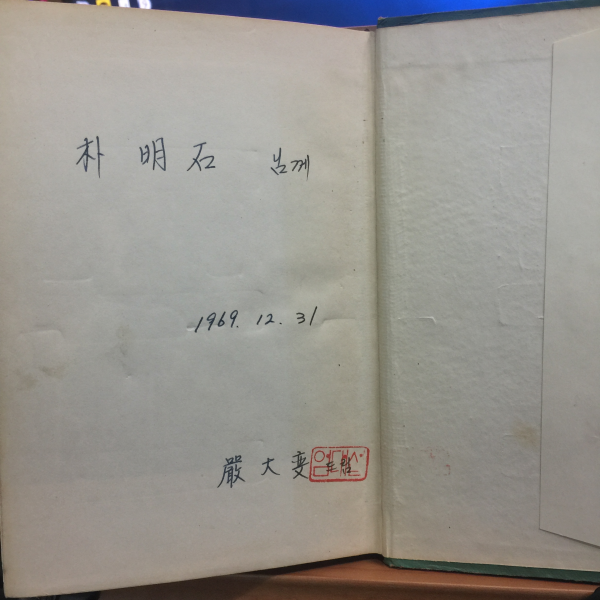 朴 明 石 님께
1969. 12. 31
嚴 大 燮